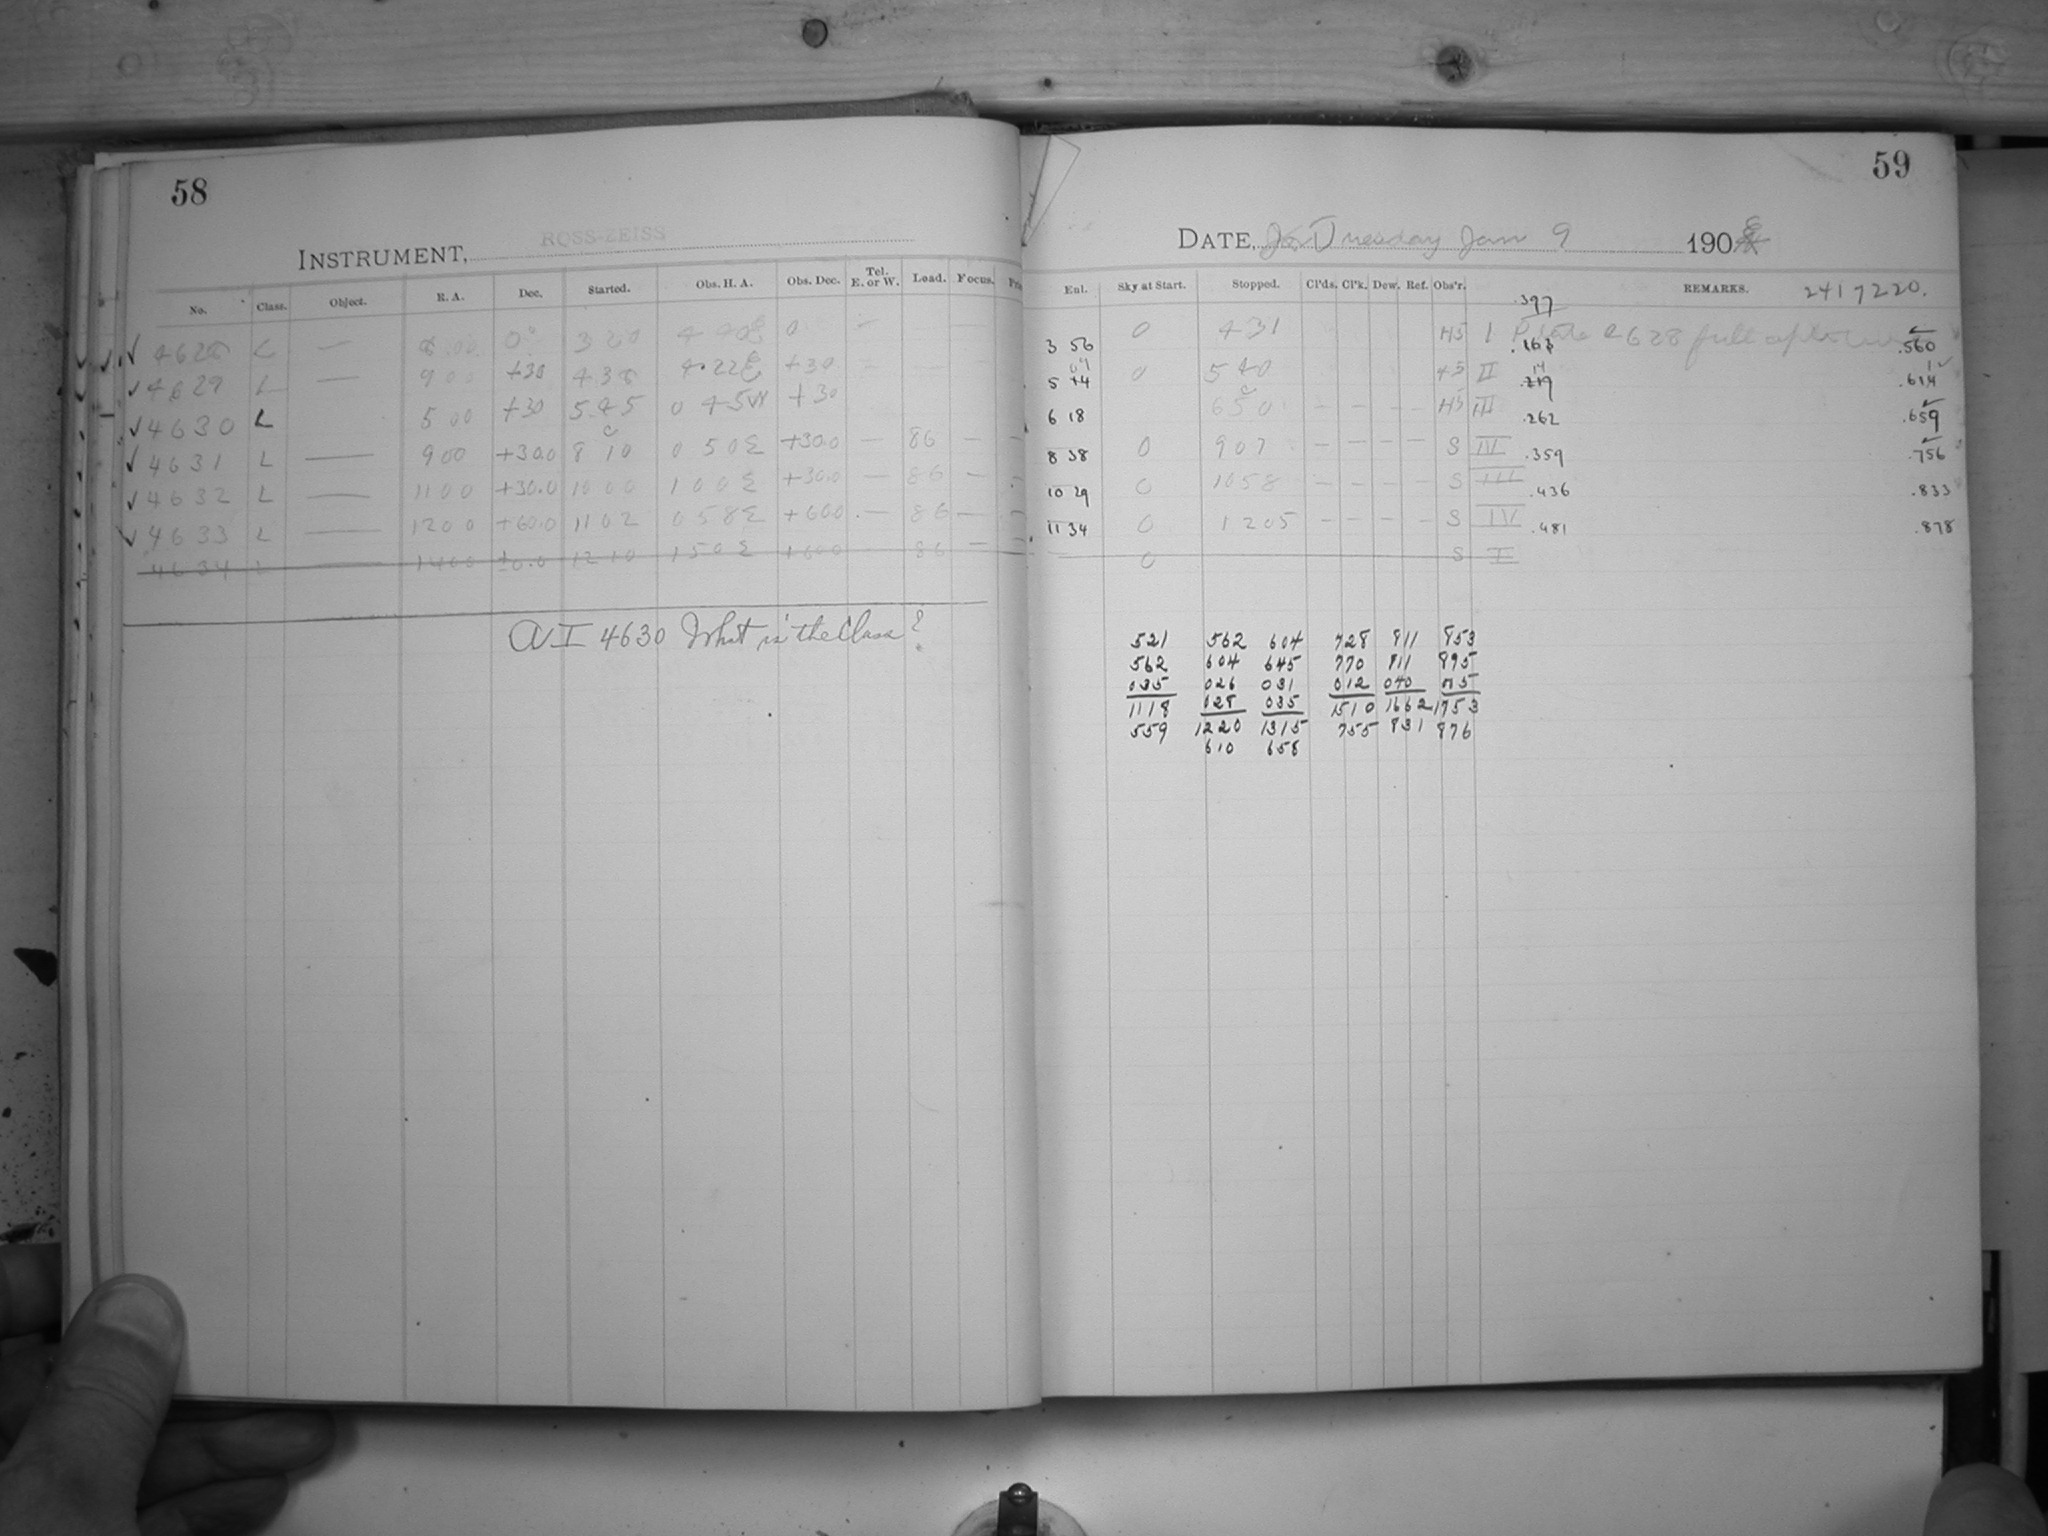 58
ROSS-ZEISS
INSTRUMENT,
No. Class. Object. R. A. Dec. Started. Obs. H. A. Obs. Dec. Tel. E. or W. Load. Focus.
4628 L — 8 00 0° 3 20 4 40 E 0 —
4629 L — 9 00 +30 4 38 4 22 E +30
4630 L 5 00 +30 5 45 0 45 W +30
4631 L — 9 00 +30.0 8 10 0 50 E +30.0 — 86 —
4632 L — 11 00 +30.0 10 00 1 00 E +30.0 — 86 —
4633 L — 12 00 +60.0 11 02 0 58 E +60.0 — 86 —
4634 L — 14 00 12 10 1 50 E +60.0 86 —
4630 What is the Class?
59
DATE, Tuesday Jan 9 190
Eul. Sky at Start. Stopped. Cl'ds. Cl'k. Dew. Ref. Obs'r. REMARKS. 2417220.
.397
3 56 0 4 31 HS I .163 Plate 4628 full .560
5 0 5 40 HS II .614
6 18 6 50 — — — — HS III .262 .659
8 38 0 9 07 — — — — S IV .359 .756
10 29 0 10 58 — — — — S III .436 .833
11 34 0 12 05 — — — — S IV .481 .878
0 S V
521 562 604 728 811 853
562 604 645 770 811 895
035 026 031 012 040
1118 028 035 1510 1662 1753
559 1220 1315 755 831 876
610 658